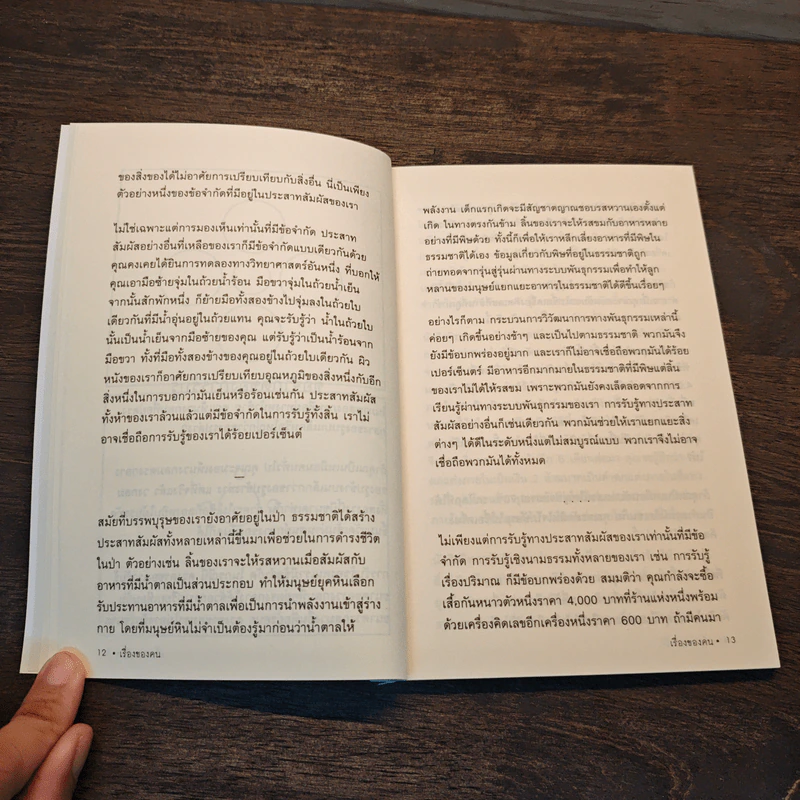 ของสิ่งของได้ไม่อาศัยการเปรียบเทียบกับสิ่งอื่น นี่เป็นเพียง
ตัวอย่างหนึ่งของข้อจำกัดที่มีอยู่ในประสาทสัมผัสของเรา
ไม่ใช่เฉพาะแต่การมองเห็นเท่านั้นที่มีข้อจำกัด ประสาท
สัมผัสอย่างอื่นที่เหลือของเราก็มีข้อจำกัดแบบเดียวกันด้วย
คุณคงเคยได้ยินการทดลองทางวิทยาศาสตร์อันหนึ่ง ที่บอกให้
คุณเอามือซ้ายจุ่มในถ้วยน้ำร้อน มือขวาจุ่มในถ้วยน้ำเย็น
จากนั้นสักพักหนึ่ง ก็ย้ายมือทั้งสองข้างไปจุ่มลงในถ้วยใบ
เดียวกันที่มีน้ำอุ่นอยู่ในถ้วยแทน คุณจะรับรู้ว่า น้ำในถ้วยใบ
นั้นเป็นน้ำเย็นจากมือซ้ายของคุณ แต่รับรู้ว่าเป็นน้ำร้อนจาก
มือขวา ทั้งที่มือทั้งสองข้างของคุณอยู่ในถ้วยใบเดียวกัน ผิว
หนังของเราก็อาศัยการเปรียบเทียบอุณหภูมิของสิ่งหนึ่งกับอีก
สิ่งหนึ่งในการบอกว่ามันเย็นหรือร้อนเช่นกัน ประสาทสัมผัส
ทั้งห้าของเราล้วนแล้วแต่มีข้อจำกัดในการรับรู้ทั้งสิ้น เราไม่
อาจเชื่อถือการรับรู้ของเราได้ร้อยเปอร์เซ็นต์
สมัยที่บรรพบุรุษของเรายังอาศัยอยู่ในป่า ธรรมชาติได้สร้าง
ประสาทสัมผัสทั้งหลายเหล่านี้ขึ้นมาเพื่อช่วยในการดำรงชีวิต
ในป่า ตัวอย่างเช่น ลิ้นของเราจะให้รสหวานเมื่อสัมผัสกับ
อาหารที่มีน้ำตาลเป็นส่วนประกอบ ทำให้มนุษย์ยุคหินเลือก
รับประทานอาหารที่มีน้ำตาลเพื่อเป็นการนำพลังงานเข้าสู่ร่าง
กาย โดยที่มนุษย์หินไม่จำเป็นต้องรู้มาก่อนว่าน้ำตาลให้
12 • เรื่องของคน
พลังงาน เด็กแรกเกิดจะมีสัญชาตญาณชอบรสหวานเองตั้งแต่
เกิด ในทางตรงกันข้าม ลิ้นของเราจะให้รสขมกับอาหารหลาย
อย่างที่มีพิษด้วย ทั้งนี้ก็เพื่อให้เราหลีกเลี่ยงอาหารที่มีพิษใน
ธรรมชาติได้เอง ข้อมูลเกี่ยวกับพิษที่อยู่ในธรรมชาติถูก
ถ่ายทอดจากรุ่นสู่รุ่นผ่านทางระบบพันธุกรรมเพื่อทำให้ลูก
หลานของมนุษย์แยกแยะอาหารในธรรมชาติได้ดีขึ้นเรื่อยๆ
อย่างไรก็ตาม กระบวนการวิวัฒนาการทางพันธุกรรมเหล่านี้
ค่อยๆ เกิดขึ้นอย่างช้าๆ และเป็นไปตามธรรมชาติ พวกมันจึง
ยังมีข้อบกพร่องอยู่มาก และเราก็ไม่อาจเชื่อถือพวกมันได้ร้อย
เปอร์เซ็นตร์ มีอาหารอีกมากมายในธรรมชาติที่มีพิษแต่ลิ้น
ของเราไม่ได้ให้รสขม เพราะพวกมันยังคงเล็ดลอดจากการ
เรียนรู้ผ่านทางระบบพันธุกรรมของเรา การรับรู้ทางประสาท
สัมผัสอย่างอื่นก็เช่นเดียวกัน พวกมันช่วยให้เราแยกแยะสิ่ง
ต่างๆ ได้ดีในระดับหนึ่งแต่ไม่สมบูรณ์แบบ พวกเราจึงไม่อาจ
เชื่อถือพวกมันได้ทั้งหมด
. . . .
ไม่เพียงแต่การรับรู้ทางประสาทสัมผัสของเราเท่านั้นที่มีข้อ
จำกัด การรับรู้เชิงนามธรรมทั้งหลายของเรา เช่น การรับรู้
เรื่องปริมาณ ก็มีข้อบกพร่องด้วย สมมติว่า คุณกำลังจะซื้อ
เสื้อกันหนาวตัวหนึ่งราคา 4,000 บาทที่ร้านแห่งหนึ่งพร้อม
ด้วยเครื่องคิดเลขอีกเครื่องหนึ่งราคา 600 บาท ถ้ามีคนมา
เรื่องของคน • 13